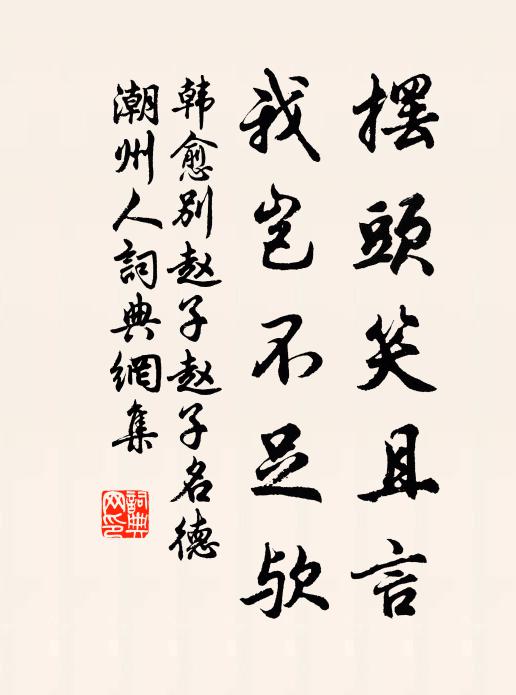 摆頭笑且言
我岂不足欤
韩愈别赵子赵子名德
潮州人詞典網集
詞典网印